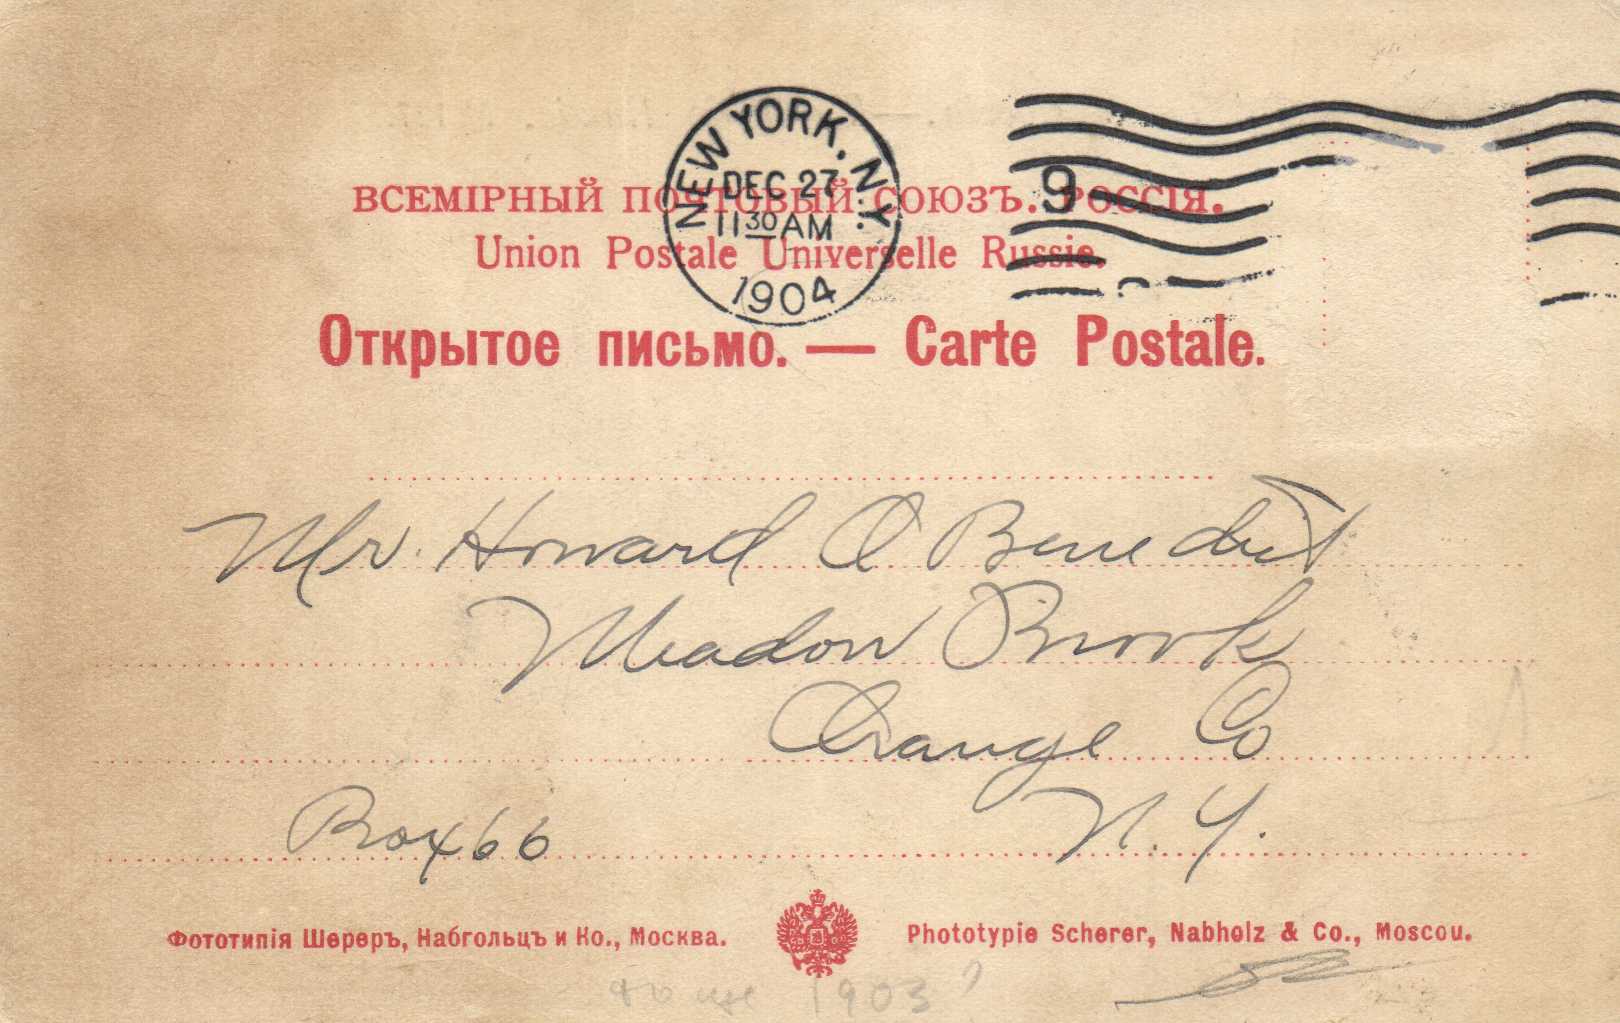 NEW YORK, N.Y.
DEC 27
11 30 AM
1904
9
ВСЕМІРНЫЙ ПОЧТОВЫЙ СОЮЗЪ. РОССІЯ.
Union Postale Universelle Russie.
Открытое письмо. — Carte Postale.
Mr. Howard A Benedict
Meadow Brook
Orange Co
Box 66 N. Y.
Фототипія Шереръ, Набгольцъ и Ко., Москва.
Phototypie Scherer, Nabholz & Co., Moscou.
1903